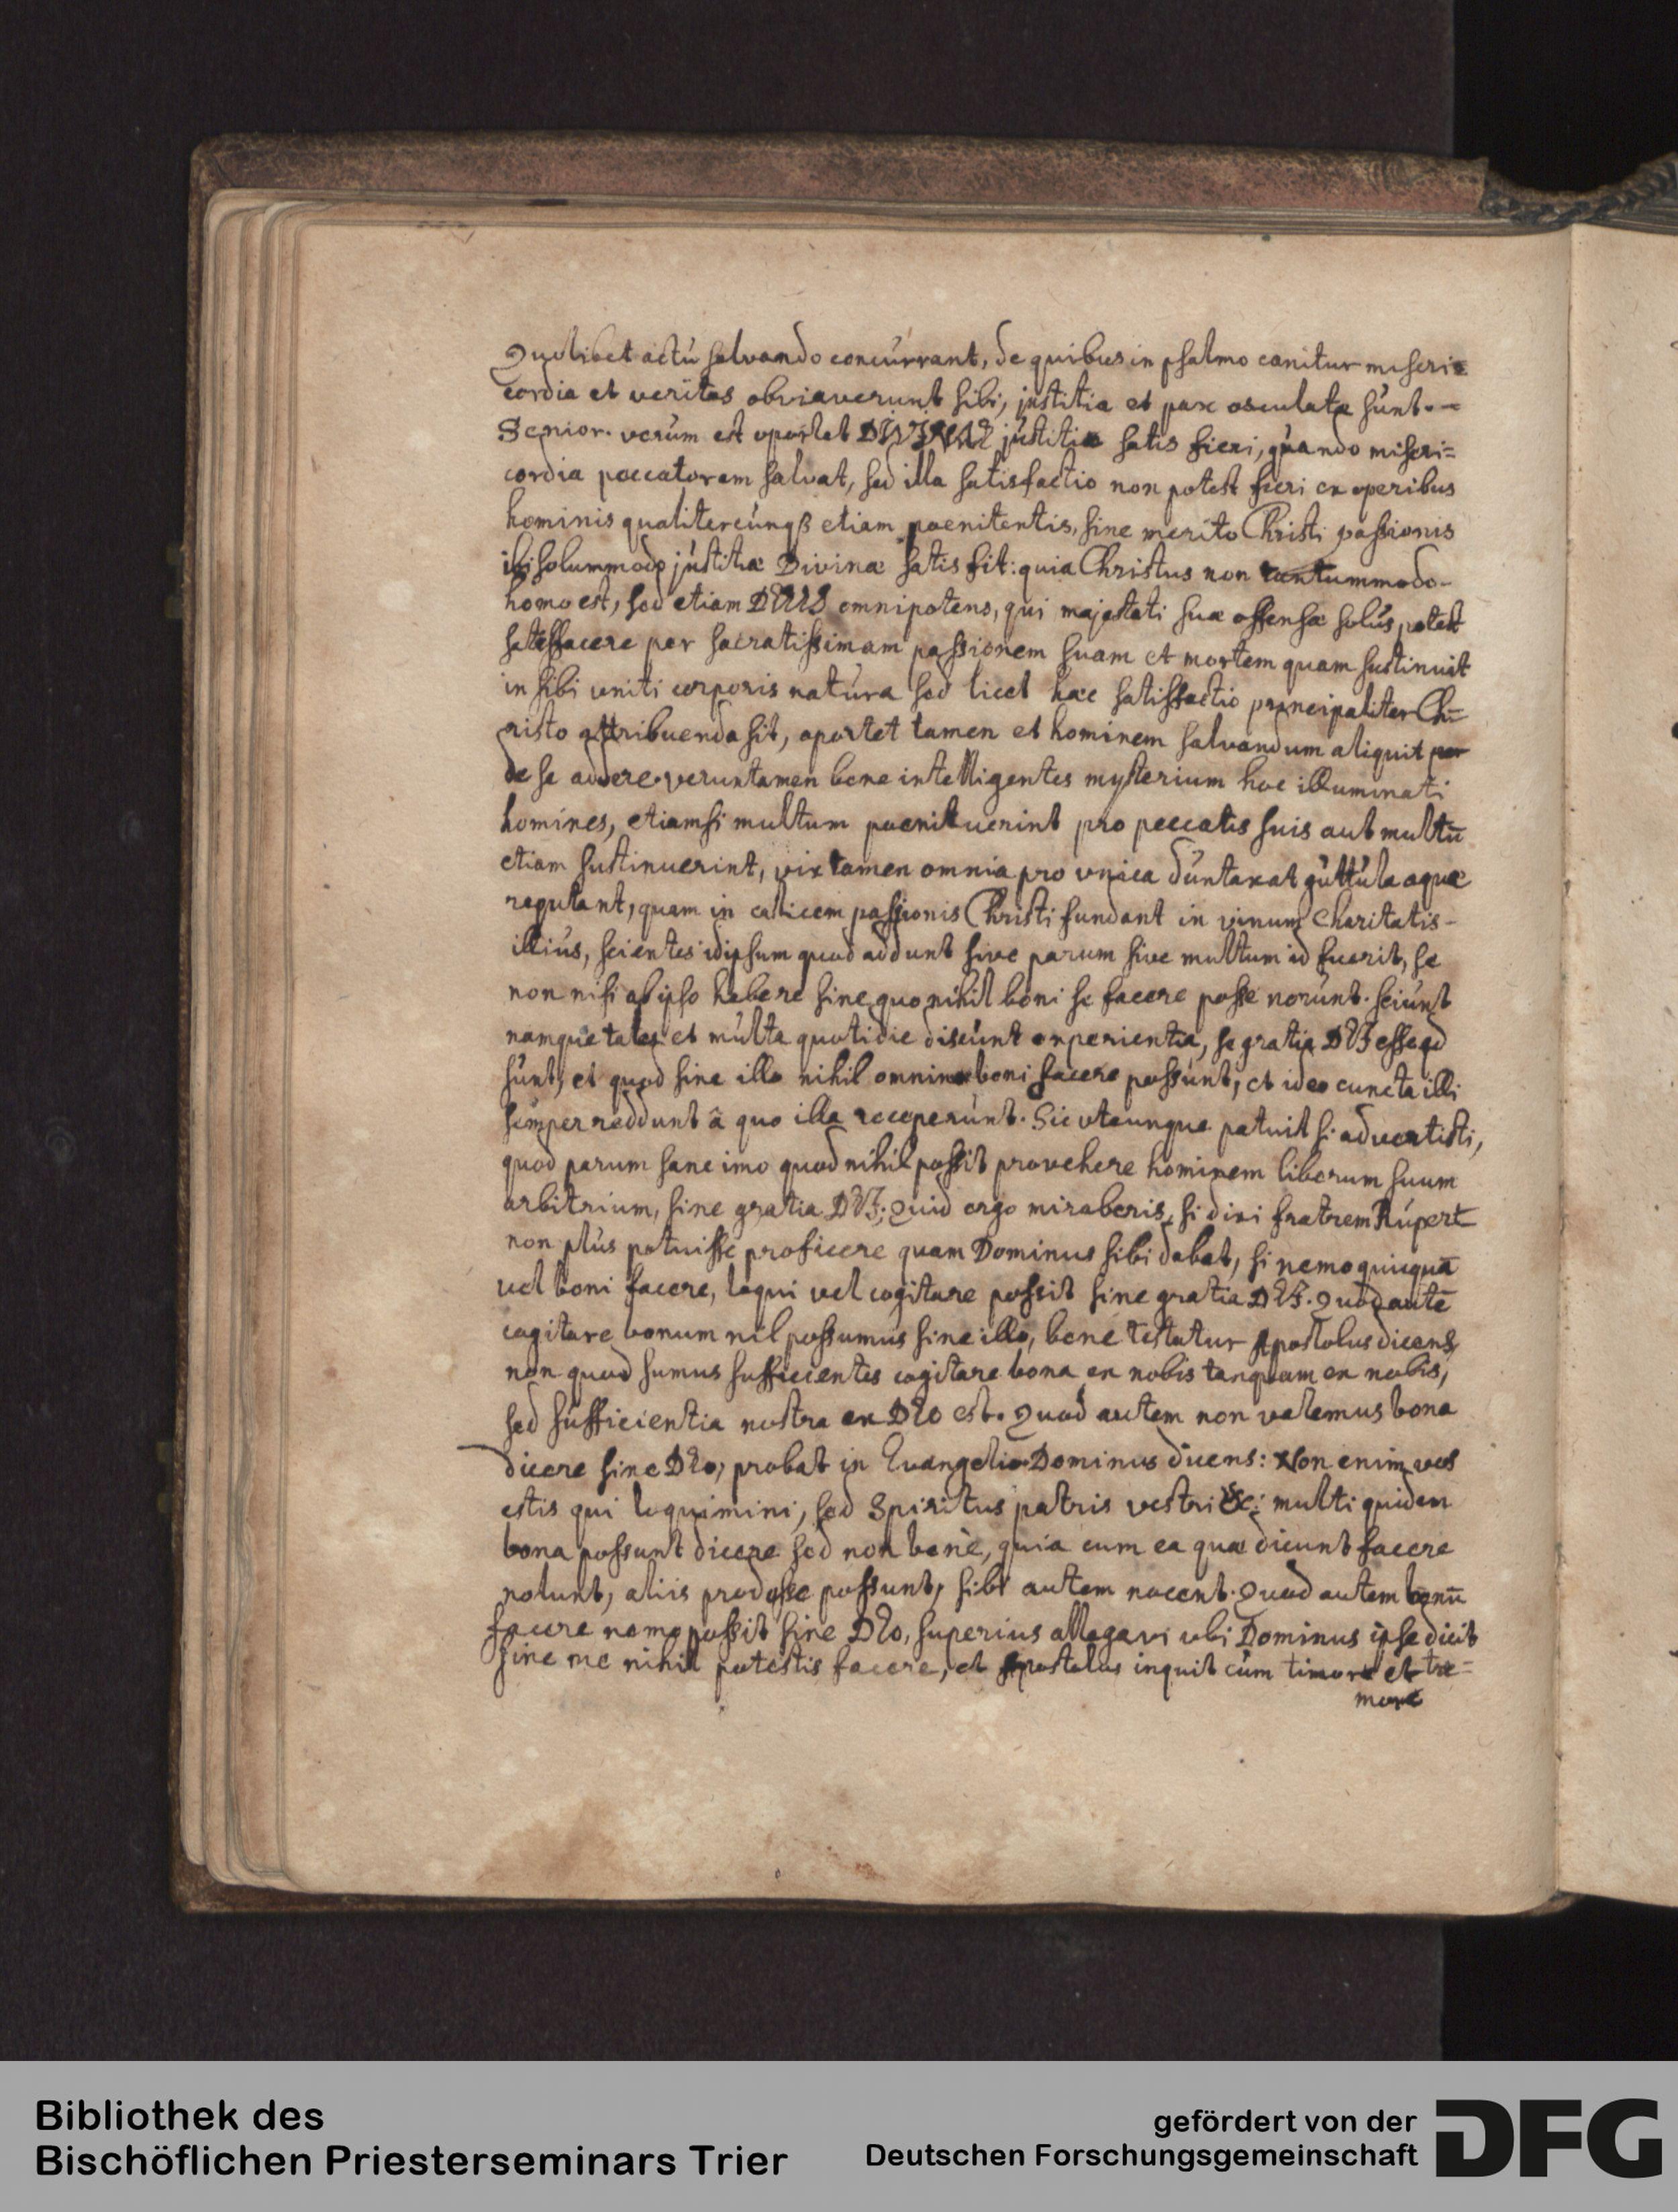 Quolibet actu salvando concurrant, de quibus in psalmo canitur miseri=
cordia et veritas obviaverunt sibi, justitia et pax osculatæ sunt.
Senior. verum est oportet DIVINAE justitiæ satis fieri, quando miseri=
cordia peccatorem salvat, sed illa satisfactio non potest fieri ex operibus
hominis qualitercunqß etiam poenitentis, sine merito Christi passionis
ibi solummodo justitiæ Divinæ satis fit: quia Christus non tantummodo
homo est, sed etiam DEUS omnipotens, qui majestati suæ offensæ solus potest
satisfacere per sacratissimam passionem suam et mortem quam sustinuit
in sibi uniti corporis natura sed licet hæc satisfactio principaliter Ch=
risto attribuenda sit, oportet tamen et hominem salvandum aliquit per
de se addere. veruntamen bene intelligentes mysterium hoc illuminati
homines, etiamsi multum poenituerint pro peccatis suis aut multū
etiam sustinuerint, vix tamen omnia pro vnica duntaxat guttula aquæ
regutant, quam in calicem passionis Christi fundant in vinum charitatis
illius, scientes idipsum quod addunt sive parum sive multum id fuerit, se
non nisi ab ipso habere sine quo nihil boni se facere posse norunt. sciunt
namque tales et multa quotidie discunt experientia, se gratia DEI esse qd
sunt, et quod sine illo nihil omnino boni facere possunt, et ideo cuncta illi
semper reddunt â quo illa receperunt. Sic vtcunque patuit si advertisti,
quod parum sane imo quod nihil possit provehere hominem liberum suum
arbitrium, sine gratia DEI; Quid ergo miraberis, si dixi fratrem Rupert
non plus potuisse proficere quam Dominus sibi dabat, si nemo quicquā
vel boni facere, loqui vel cogitare possit sine gratia DEI. Quod autē
cogitare bonum nil possumus sine illo, bene testatur Apostolus dicens,
non quod sumus sufficientes cogitare bona ex nobis tanquam ex nobis,
sed sufficientia nostra ex DEo est. Quod autem non valemus bona
dicere sine DEo, probat in Evangelio Dominus dicens: Non enim vos
estis qui loquimini, sed Spiritus patris vestri &c: multi quidem
bona possunt dicere sed non benè, quia cum ea quæ dicunt facere
nolunt, aliis prodesse possunt, sibi autem nocent. Quod autem bonū
facere nemo possit sine DEo, superius allegavi ubi Dominus ipse dicit
sine me nihil potestis facere, et Apostolus inquit cum timore et tre=
more
Bibliothek des
Bischöflichen Priesterseminars Trier
gefördert von der
Deutschen Forschungsgemeinschaft
DFG